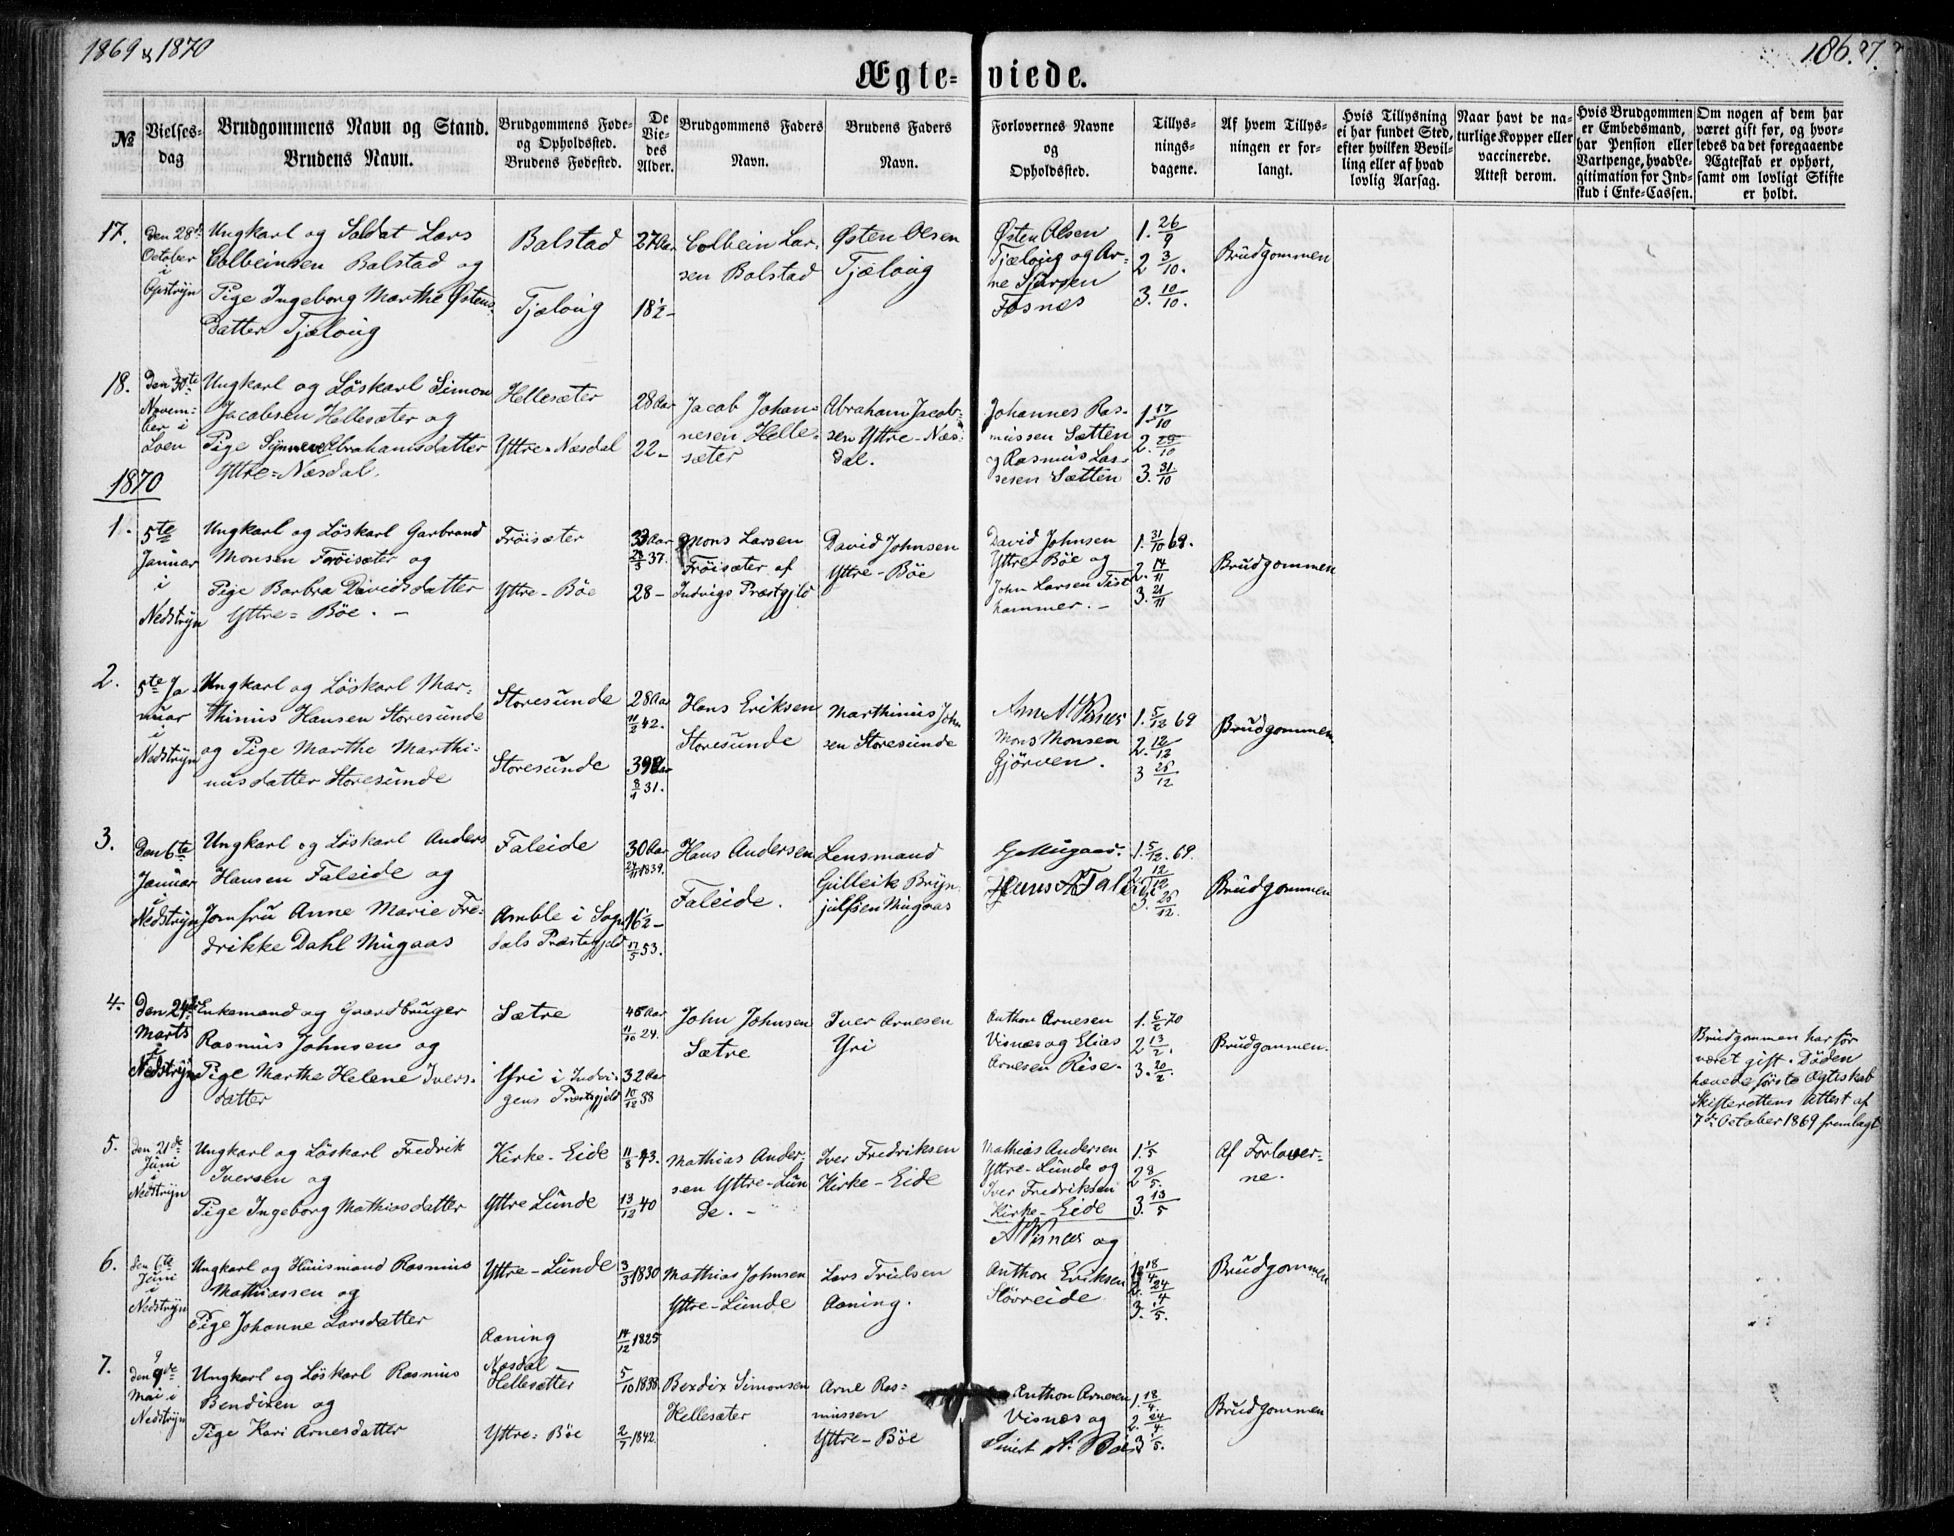 1869 & 1870
186.
Ægte=viede.
№
Vielses-
dag
Brudgommens Navn og Stand.
Brudens Navn.
Brudgommens Føde-
og Opholdssted.
Brudens Fødested.
De
Vie-
des
Alder.
Brudgommens Faders
Navn.
Brudens Faders
Navn.
Forlovernes Navne
og
Opholdssted.
Tillys-
nings-
dagene.
Af hvem Tillys-
ningen er for-
langt.
Hvis Tillysning
ei har fundet Sted,
efter hvilken Bevil-
ling eller af hvad
lovlig Aarsag.
Naar havt de na-
turlige Kopper eller
vaccinerede.
Attest derom.
Hvis Brudgommen
er Embedsmand,
har Pension eller
Vartpenge, hvad Le-
gitimation for Ind-
skud i Enke-Cassen.
Om nogen af dem har
været gift før, og hvor-
ledes da det foregaaende
Ægteskab er ophørt,
samt om lovligt Skifte
er holdt.
17.
den 28de
October
i
Opstryn
Ungkarl og Soldat Lars
Colbeinsen Bolstad og
Pige Ingeborg Marthe Østens-
datter Tjeloug
Bolstad
Tjeloug
27 Aar
18½ -
Colbein Lar-
sen Bolstad
Østen Olsen
Tjeloug
Østen Olsen
Tjeloug og Ar-
ne Sjursen
Fosnes
1. 26/9
2 3/10.
3. 10/10.
Brudgommen
18.
Den 30te
Novem-
ber i
Loen
Ungkarl og Löskarl Simon
Jacobsen Hellesæter og
Pige Synneve Abrahamsdatter
Yttre=Næsdal.
Hellesæter
Yttre-Næsdal
28 Aar
22 -
Jacob Johan-
nesen Helle-
sæter
Abraham Jacob-
sen Yttre-Næs-
dal.
Johannes Ras-
mussen Sætten
og Rasmus Las-
sesen Sætten
1 17/10
2. /10
3. 31/10
1870
1.
5te
Januar
i
Nedstryn
Ungkarl og Löskarl Garbrand
Monsen Fröisæter og
Pige Barbra Davidsdatter
Yttre=Böe. -
Fröisæter
Yttre-Böe
33 Aar
37.
28 -
Mons Larsen
Fröisæter af
Indvigs Præstgjld
David Johnsen
Yttre-Böe
David Johnsen
Yttre-Böe og
John Larsen Tist-
hammer. -
1. 31/10 69.
2. 14/11
3. 21/11
Brudgommen
2.
5te Ja-
nuar
i
Nedstryn
Ungkarl og Löskarl Mar-
thinus Hansen Storesunde
og Pige Marthe Marthi-
nusdatter Storesunde
Storesunde
Storesunde
28 Aar
11/2 42.
39 Aar
31.
Hans Eriksen
Storesunde
Marthinus John-
sen Storesunde
Visnes
Mons Monsen
Gjörven.
1. 5/12 69
2. 12/12
3 /12
Brudgommen
3.
Den 6te
Januar
i
Nedstryn
Ungkarl og Löskarl Anders
Hansen Faleide og
Jomfru Anne Marie Fre-
drikke Dahl Mugaas
Faleide
Amble i Sogn-
dals Præstegjeld
30 Aar
24/11 1839.
16½ -
17/5 53.
Hans Andersen
Faleide.
Lensmand
Gulleik Bryn-
julfsen Mugaas
G. Mugaas.
Hans A Faleide
1. 5/12. 69.
2. 12/12
3. /12.
Brudgommen
4.
Den 24de
Marts
i
Nedstryn
Enkemand og Gaardbruger
Rasmus Johnsen og
Pige Marthe Helene Ivers-
datter
Sætre
Yri i Indvi-
gens Præstegjeld
45 Aar
11/10 24.
32 Aar
10/12 38
John Johnsen
Sætre
Iver Arnesen
Yri
Anthon Arnesen
Visnes og Elias
Arnesen Rise.
1. 6/2 70
2 13/2.
3. 20/2.
Brudgommen.
Brudgommen har før
været gift. Döden
hævede første Ægteskab
Skifterettens Attest af
7de October 1869 fremlagt
5.
den 21de
Juni
i
Nedstryn
Ungkarl og Löskarl Fredrik
Iversen og
Pige Ingeborg Mathiasdatter
Kirke-Eide
Yttre Lunde
11/8 43.
13/12 40
Mathias Ander-
sen Yttre-Lun-
de. -
Iver Fredriksen
Kirke-Eide
Mathias Andersen
Yttre-Lunde og
Iver Fredriksen
Kirke-Eide
1. 1/5
2 8/5.
3. 13/5
Af Forlover-
ne.
6.
den 6te
Juni
i
Nedstryn
Ungkarl og Huusmand Rasmus
Mathiassen og
Pige Johanne Larsdatter
Yttre-Lunde
Aaning
3/3 1830
14/12 1825
Mathias Johnsen
Yttre-Lunde
Lars Trulsen
Aaning.
A Visnes og
Anthon Eriksen
Flövreide
1. 18/4
2. 24/4
3. 1/5.
Brudgommen
7.
9
den 9de
Mai i
Nedstryn
Ungkarl og Löskarl Rasmus
Bendixen og
Pige Kari Arnesdatter
Næsdal -
Hellesætter
Yttre=Böe
5/10 1838
2/7 1842.
Bendix Simonsen
Hellesæter
Arne Ras-
mussen
Yttre-Böe
Anthon Arnesen
Visnes og
Sivert A. Böe
1. 18/4.
2. 24/4
3. 1/5.
Brudgommen